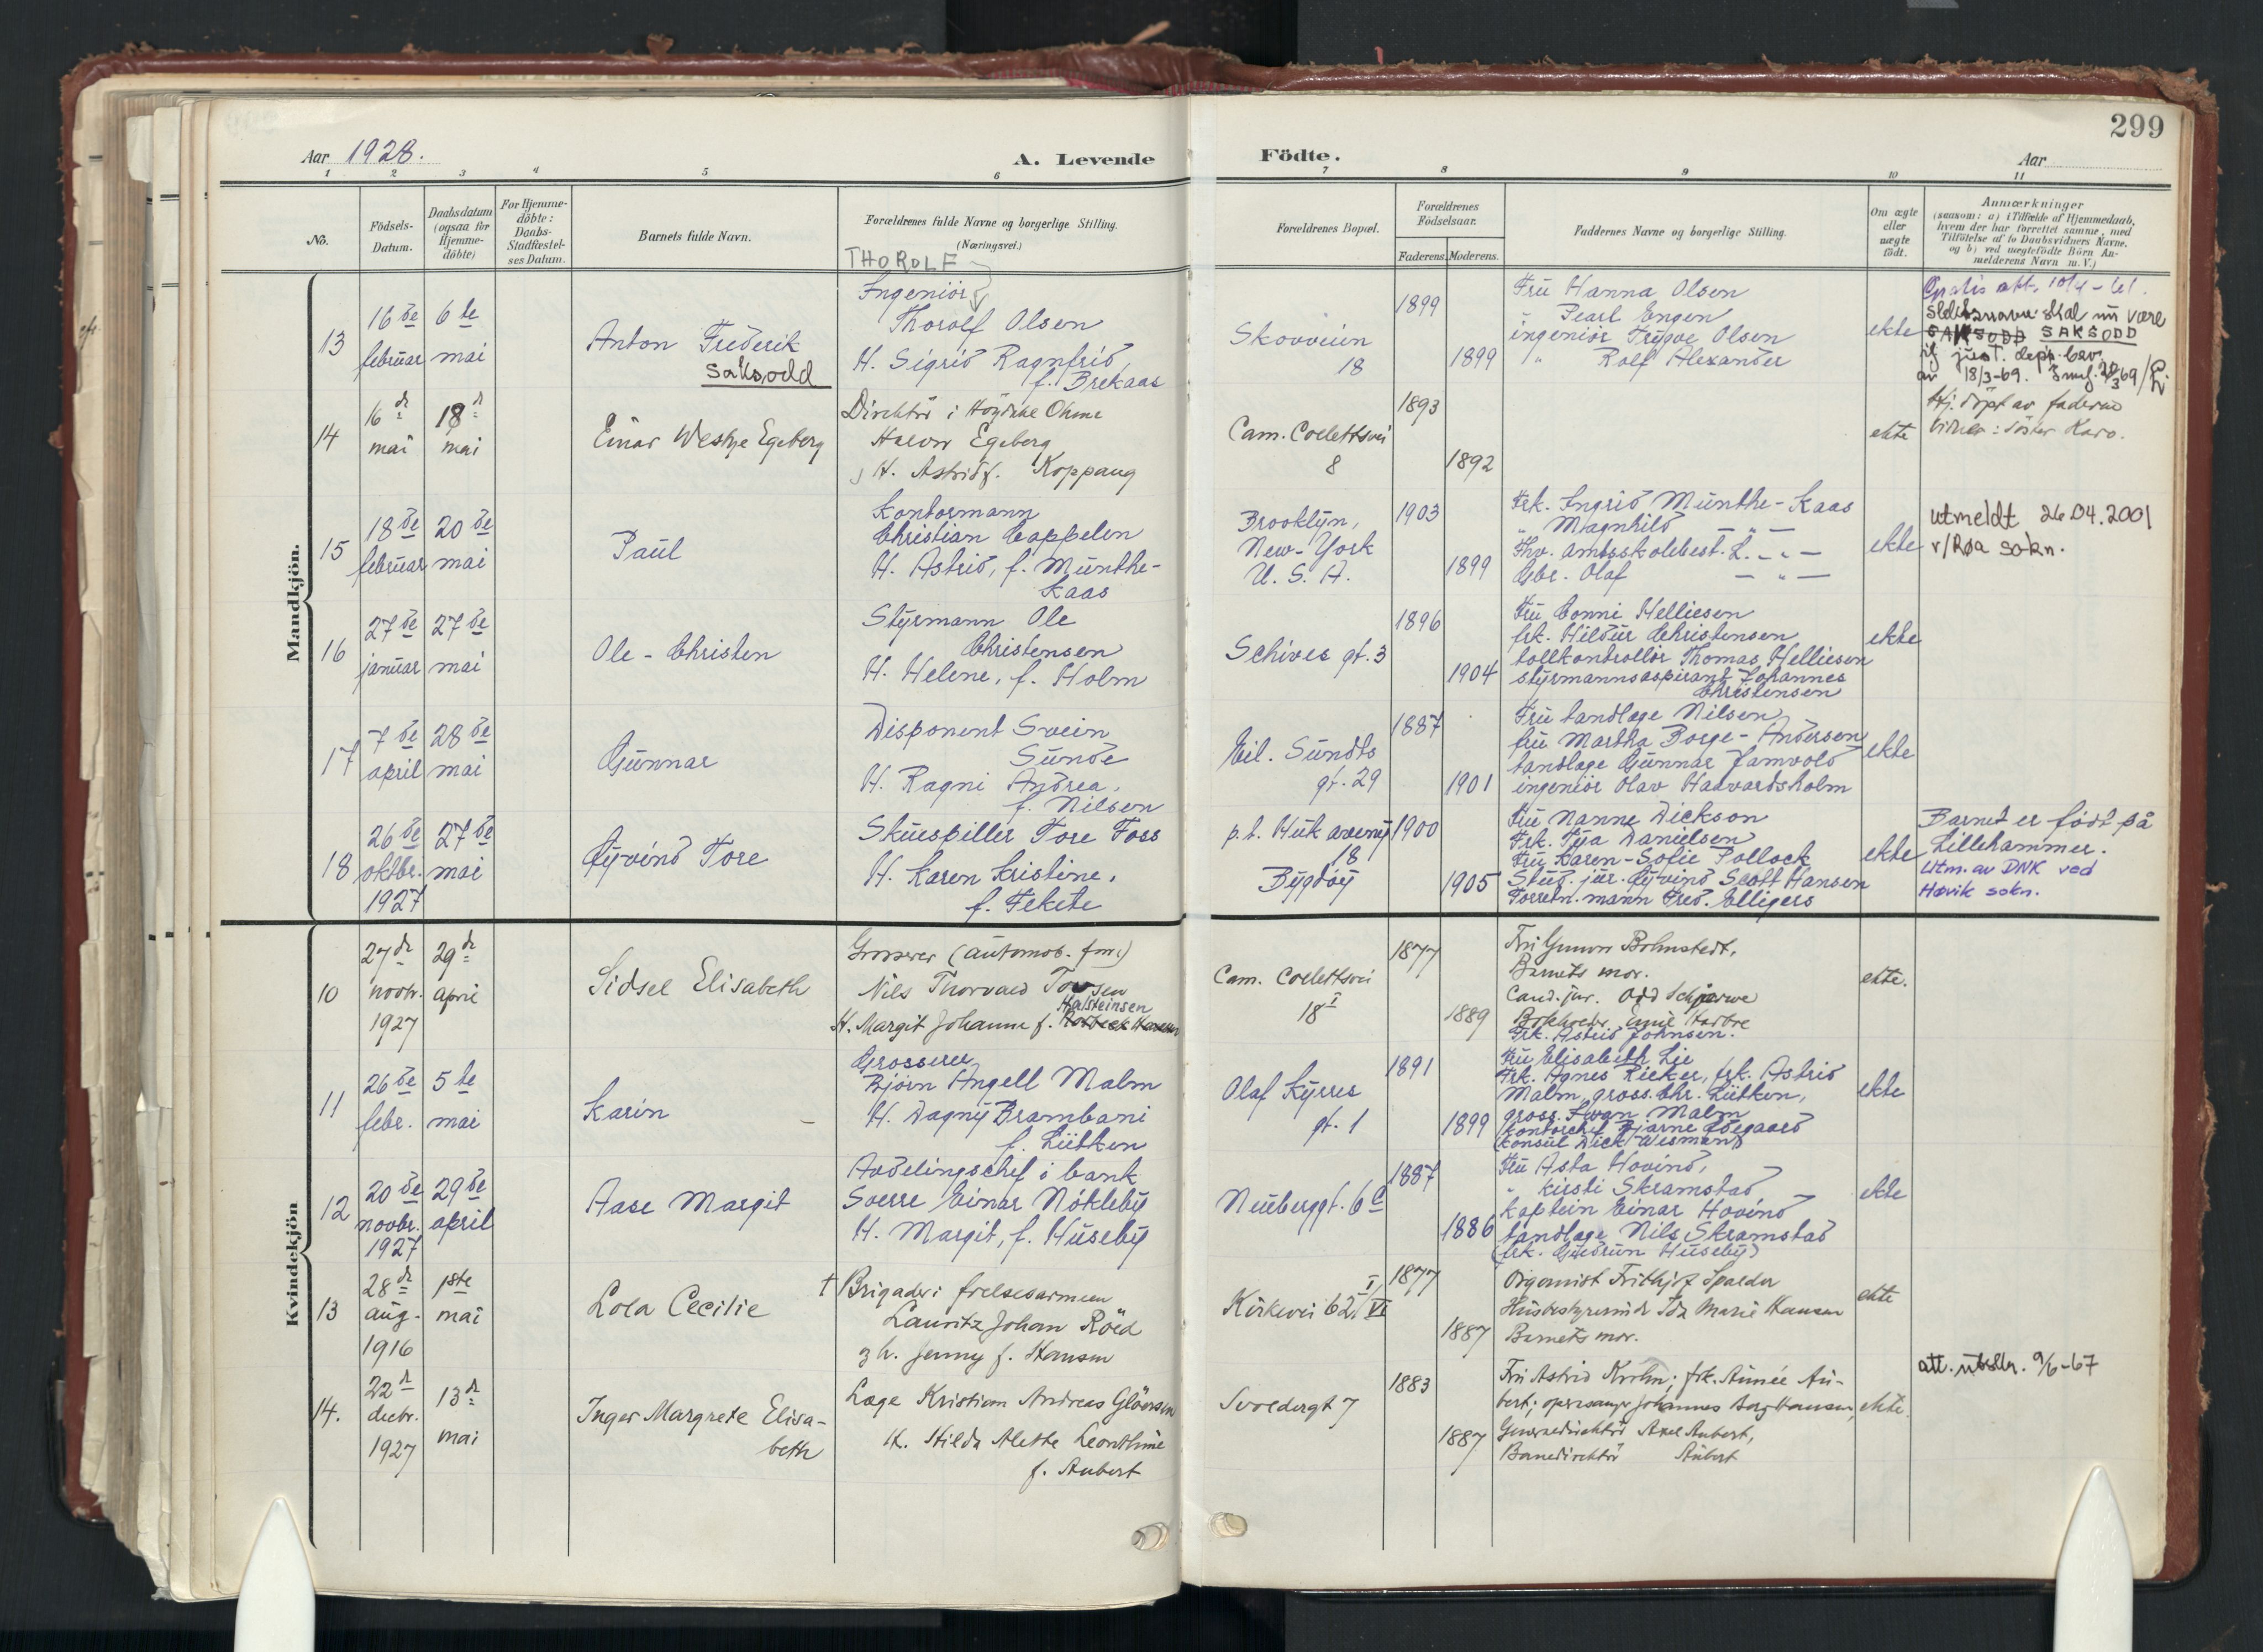 299
Aar 1928.
A. Levende
Födte.
Aar
1 2 3 4 5 6
7 8 9 10 11
No.
Födsels-
Datum.
Daabsdatum
(ogsaa for
Hjemme-
döbte)
For Hjemme-
döbte:
Daabs-
Stadfæstel-
ses Datum.
Barnets fulde Navn.
Forældrenes fulde Navne og borgerlige Stilling.
(Næringsvei.)
Forældrenes Bopæl.
Forældrenes
Födselsaar.
Faderens. Moderens.
Faddernes Navne og borgerlige Stilling.
Om ægte
eller
uægte
födt.
Anmærkninger
(saasom: a) i Tilfælde af Hjemmedaab,
hvem der har forrettet samme, med
Tilföielse af to Daabsvidners Navne,
og b) ved uægtefödte Börn An-
melderens Navn m. V.)
Mandkjön.
13
16de
februar
6te
mai
Anton Frederik
Saksodd
THOROLF
Ingeniör
Thorolf Olsen
H. Sigrid Ragnfrid,
f. Brekaas
Skovveien
18
1899
1899
Fru Hanna Olsen
" Pearl Engen
ingeniör Trygve Olsen
" Rolf Alexander
ekte
Gratis att.
Slektsnavn skal nu være
SAKSODD SAKSODD
if just. dep's. bev.
av 18/3-69.
14
16de
mai
18de
mai
Einar Westye Egeberg
Direktör i
Halvor Egeberg
H. Astrid f. Koppang
Cam. Collettsvei
8
1893
1892
ekte
Hj. döpt av faderen
vidner: söster Karo.
15
18de
februar
20de
mai
Paul
Kontormann
Christian Cappelen
H. Astrid, f. Munthe-
Kaas
Brooklyn,
New-York
U. S. A.
1903
1899
Frk. Ingrid Munthe-Kaas
" Magnhild — " —
Fhv. amtsskolebest. L. — " —
Gbr. Olaf — " —
ekte
Utmeldt 26.04.2001
v/Røa sokn.
16
27de
januar
27de
mai
Ole - Christen
Styrmann Ole
Christensen
H. Helene, f. Holm
Schives gt. 3
1896
1904
Fru Conni Helliesen
frk. Hildur Christensen
tollkontrollör Thomas Helliesen
styrmannsaspirant Johannes
Christensen
ekte
17
7de
april
28de
mai
Gunnar
Disponent Svein
Sunde
H. Ragni Andrea,
f. Nilsen
Eil. Sundts
gt. 29
1887
1901
Fru tandlæge Nilsen
fru Martha Borge-Andersen
tandlæge Gunnar Jamvold
ingeniör Olav Haavardsholm
ekte
18
26de
oktbr.
1927
27de
mai
Öyvind Tore
Skuespiller Tore Foss
H. Karen Kristine,
f. Fekete
p.t. Huk aveny
18
Bygdöy
1900
1905
Fru Nanne Dickson
Frk. Tya Danielsen
Fru Karen-Sofie Pollock
Stud. jur. Öyvind Scott Hansen
Forretn. mann Fred. Elligers
ekte
Barnet er födt på
Lillehammer.
Utm. av DNK ved
Høvik sokn.
Kvindekjön
10
27de
novbr.
1927
29de
april
Sidsel Elisabeth
Grosserer (automob. frm.)
Nils Thorvald Torsen
Halsteinsen
H. Margit Johanne f.
Cam. Collettsvei
18 I
1877
1889
Fru Gunvor Bohmstedt,
Barnets mor.
Cand. jur. Odd Schjerwe
Frk. Astrid Johnsen.
ekte.
11
26de
febr.
5te
mai
Karin
Grosserer
Björn Angell Malm
H. Dagny Brambani
f. Lütken
Olaf Kyrres
gt. 1
1891
1899
Fru Elisabeth Lie
Frk. Agnes Ricker, frk. Astrid
Malm, gross. Chr. Lütken,
gross. Malm
kontorchef Bjarne Ödegaard
(konsul Dick Wesman)
ekte
12
20de
novbr.
1927
29de
april
Aase Margit
Avdelingschef i bank
Sverre Einar Nökleby
H. Margit, f. Huseby
Neuberggt. 6c
1887
1886
Fru Asta Hovind,
" Kirsti Skramstad
kaptein Einar Hovind
tandlæge Nils Skramstad
(frk. Gudrun Huseby)
ekte
13
28de
aug.
1916
1ste
mai
Lola Cecilie
† Brigader i frelsesarmeen
Lauritz Johan Röed
g h. Jenny f. Hansen
Kirkevei 62 I/VI
1877
1887
Organist Frithjof Spalder
Husbestyrerinde Ida Marie Hansen
Barnets mor.
ekte
14.
22de
decbr.
1927
13de
mai
Inger Margrete Elisa-
beth
Læge Kristian Andreas Glöersen
H. Hilda Alette Leonthine
f. Aubert
Svoldergt 7
1883
1887
Fru Astrid Krohn; frk. Aimée Au-
bert; operasanger Johannes Berg Hansen,
Generaldirektör Axel Aubert,
Banedirektör Aubert
ekte.
att. utstlr. 9/6-67